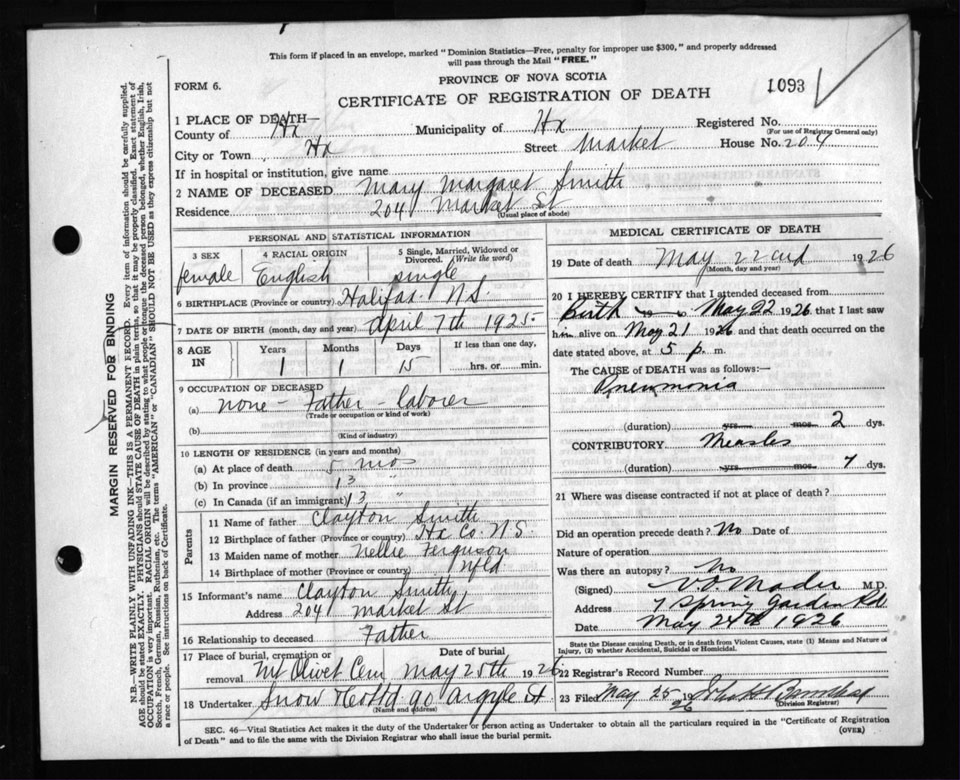 This form if placed in an envelope, marked "Dominion Statistics—Free, penalty for improper use $300," and properly addressed
will pass through the Mail "FREE."
FORM 6.
PROVINCE OF NOVA SCOTIA
CERTIFICATE OF REGISTRATION OF DEATH
1093
1 PLACE OF DEATH—
County of Hx Municipality of Hx Registered No.
(For use of Registrar General only)
City or Town Hx Street Market House No. 204
If in hospital or institution, give name
2 NAME OF DECEASED Mary Margaret Smith
Residence 204 Market St
(Usual place of abode)
PERSONAL AND STATISTICAL INFORMATION
3 SEX female
4 RACIAL ORIGIN English
5 Single, Married, Widowed or Divorced (Write the word) single
6 BIRTHPLACE (Province or country) Halifax N.S.
7 DATE OF BIRTH (month, day and year) April 7th 1925
8 AGE IN Years 1 Months 1 Days 15 If less than one day, hrs. or min.
9 OCCUPATION OF DECEASED
(a) none - Father - laborer
(Trade or occupation or kind of work)
(b)
(Kind of industry)
10 LENGTH OF RESIDENCE (in years and months)
(a) At place of death 5 mos
(b) In province 13 "
(c) In Canada (if an immigrant) 13 "
Parents
11 Name of father Clayton Smith
12 Birthplace of father (Province or country) Hx Co. N.S.
13 Maiden name of mother Nellie Ferguson
14 Birthplace of mother (Province or country) Nfld
15 Informant's name Clayton Smith
Address 204 Market St
16 Relationship to deceased Father
17 Place of burial, cremation or removal Mt Olivet Cem Date of burial May 25th 1926
18 Undertaker Snow & Co Ltd 90 Argyle St
(Name and address)
MEDICAL CERTIFICATE OF DEATH
19 Date of death May 22nd 1926
(Month, day and year)
20 I HEREBY CERTIFY that I attended deceased from
Birth 19 to May 22 1926 that I last saw
him alive on May 21 1926 and that death occurred on the
date stated above, at 5 p. m.
The CAUSE of DEATH was as follows:—
Pneumonia
(duration) yrs. mos. 2 dys.
CONTRIBUTORY Measles
(duration) yrs. mos. 7 dys.
21 Where was disease contracted if not at place of death?
Did an operation precede death? No Date of
Nature of operation
Was there an autopsy? No
(Signed) V.O. Mader M.D.
Address 7 Spring Garden Rd
Date May 24th 1926
State the Disease Causing Death, or in death from Violent Causes, state (1) Means and Nature of
Injury, (2) whether Accidental, Suicidal or Homicidal.
22 Registrar's Record Number
23 Filed May 25 26
(Division Registrar)
SEC. 46—Vital Statistics Act makes it the duty of the Undertaker or person acting as Undertaker to obtain all the particulars required in the "Certificate of Registration
of Death" and to file the same with the Division Registrar who shall issue the burial permit.
(OVER)
MARGIN RESERVED FOR BINDING
N.B.—WRITE PLAINLY WITH UNFADING INK—THIS IS A PERMANENT RECORD. Every item of information should be carefully supplied.
AGE should be stated EXACTLY. PHYSICIANS should STATE CAUSE OF DEATH in plain terms, so that it may be properly classified. Exact statement of
OCCUPATION is very important. RACIAL ORIGIN will be described by stating to what people or tongue the deceased person belonged, whether English, Irish,
Scotch, French, German, Russian, Ruthenian, etc. The terms "AMERICAN" or "CANADIAN" SHOULD NOT BE USED as they express citizenship but not
a race or people. See instructions on back of Certificate.